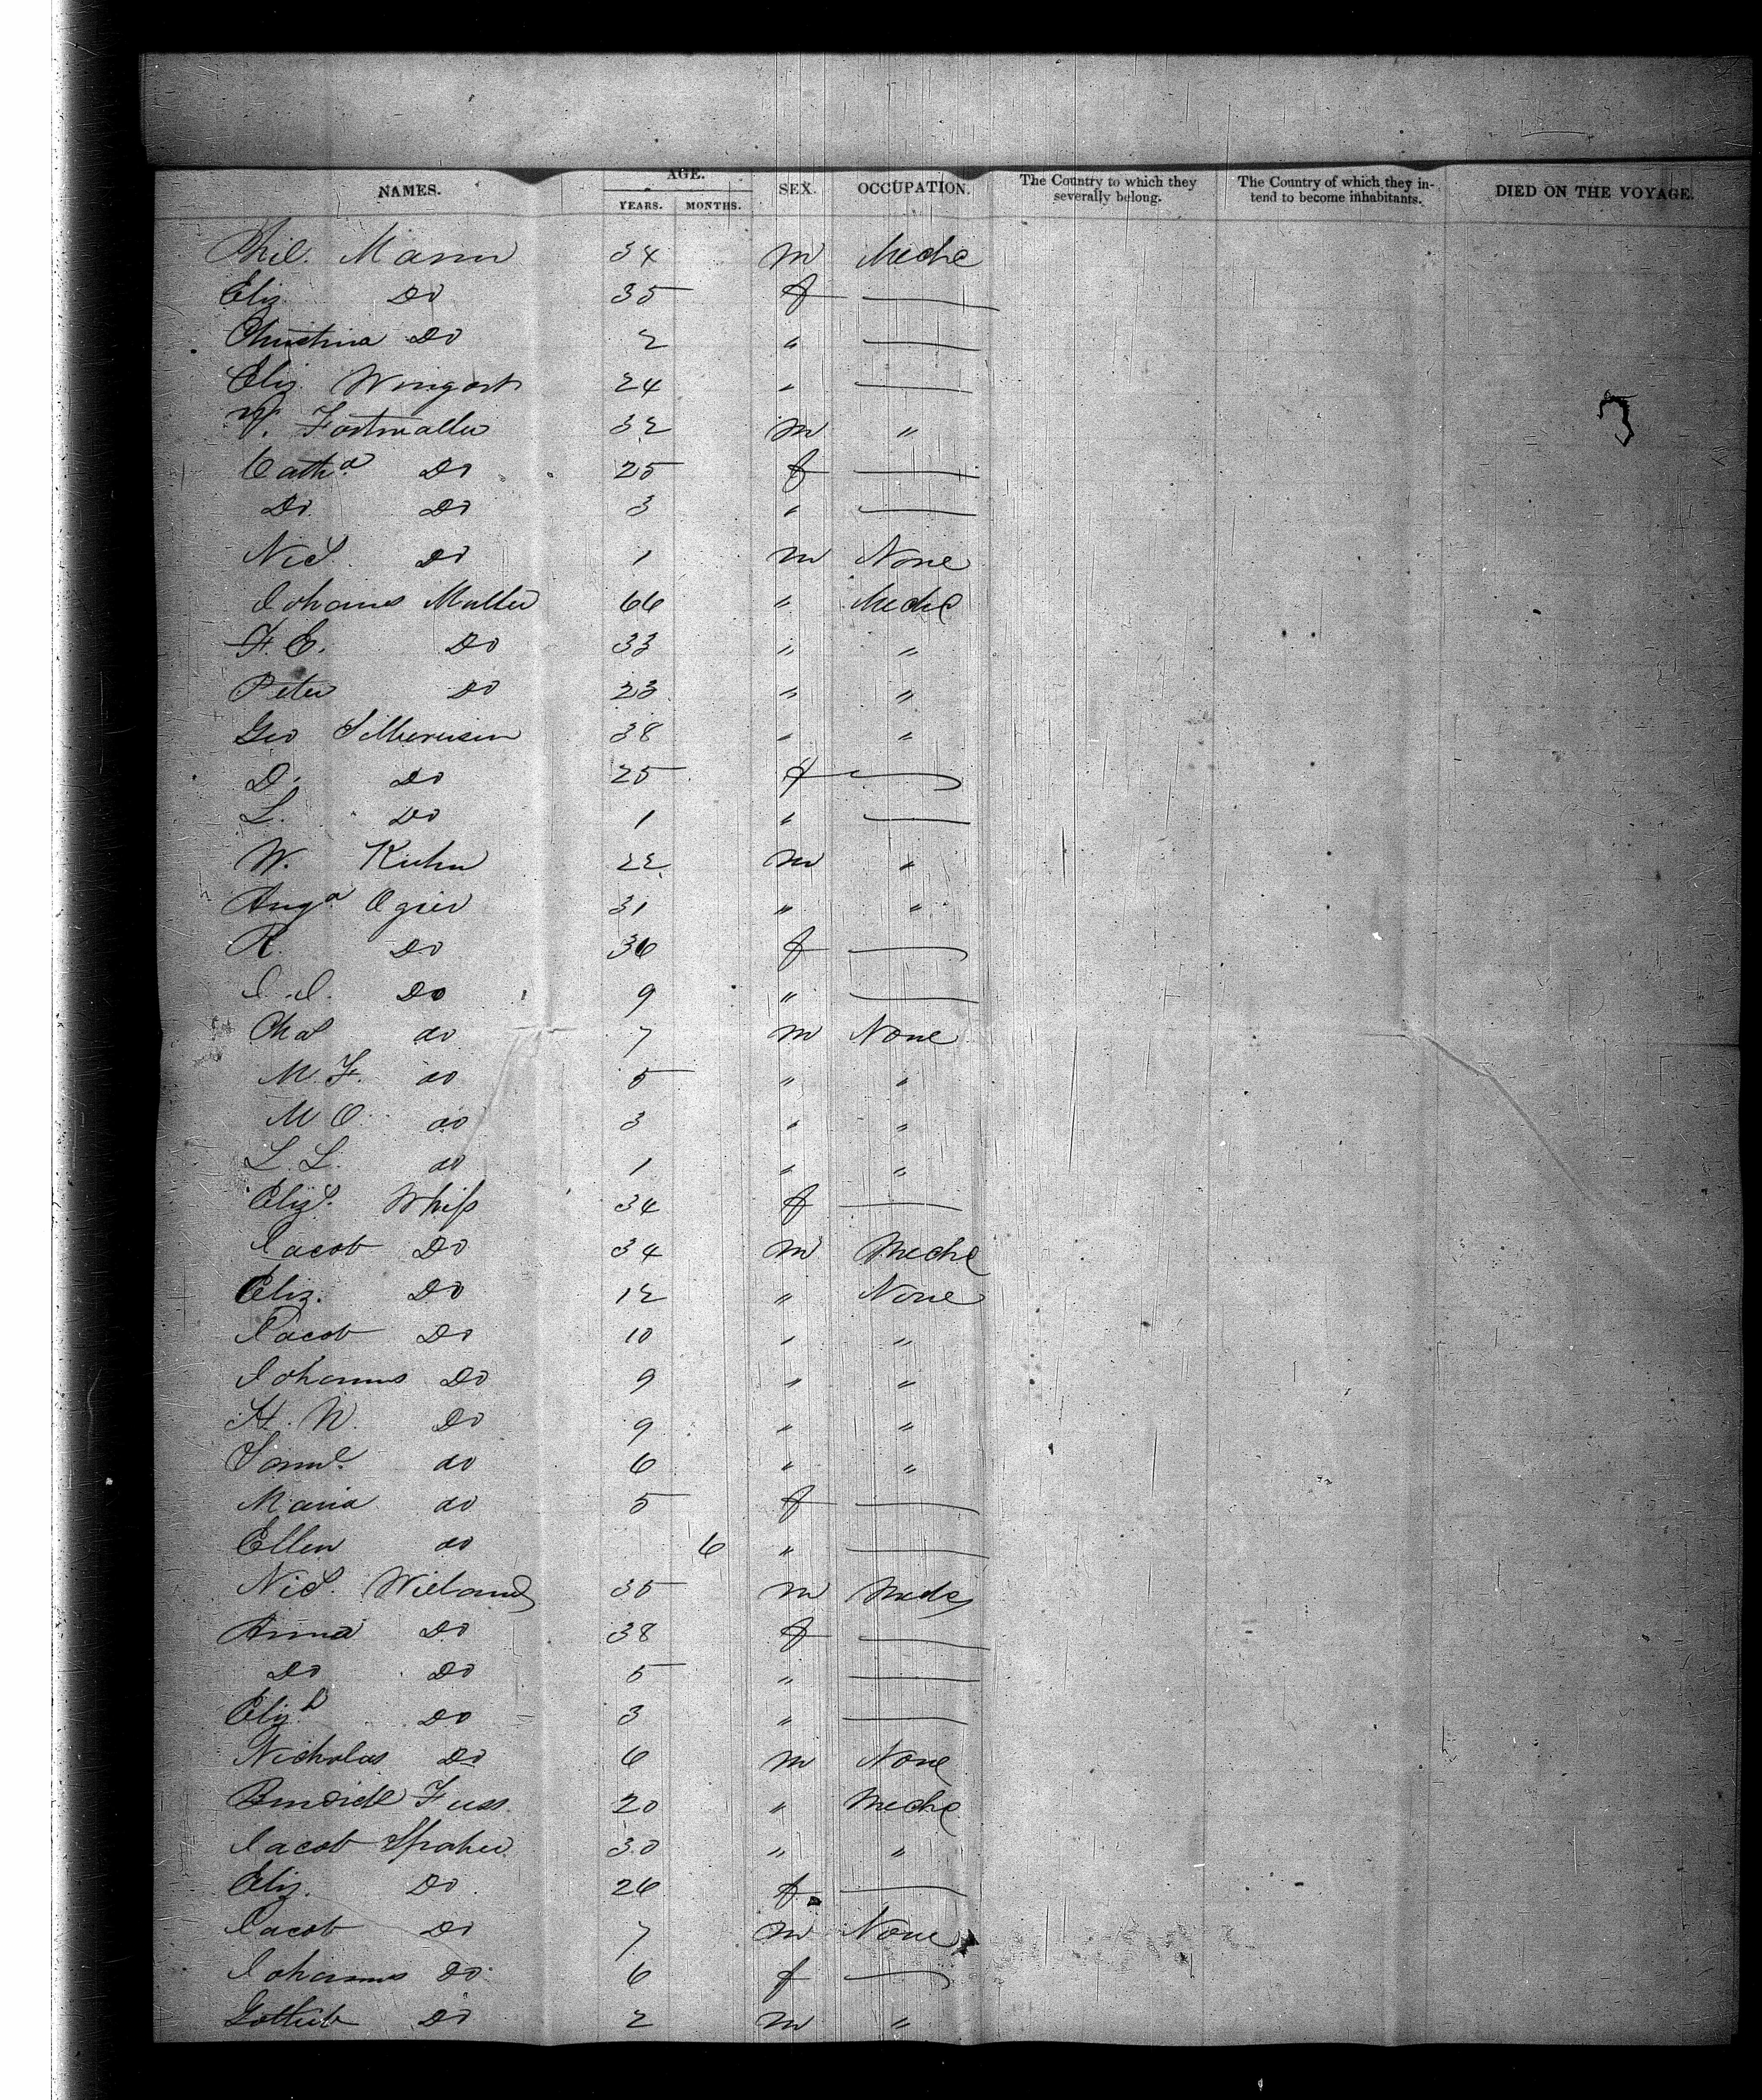 NAMES. AGE. SEX. OCCUPATION. The Country to which they severally belong. The Country of which they intend to become inhabitants. DIED ON THE VOYAGE.
YEARS. MONTHS.
Phil. Mann 34 m Mechc
Eliz Do 35 f —
Christina Do 2 " —
Eliz Wingart 24 " —
3
32 m "
Catha Do 25 f —
Do Do 3 " —
Nics. Do 1 m None
Johanns Muller 66 " Mechc
F. E. Do 33 " "
Peter Do 23 " "
Geo 38 " "
D. Do 25 f —
L. Do 1 " —
W. Kuhn 22 m "
Auga Ogier 31 " "
R. Do 36 f —
J. J. Do 9 " —
Chas do 7 m None
M. F. do 5 " "
M O. do 3 " "
L. L. do 1 " "
Eliz. Whiss 34 f —
Jacob Do 34 m Mechc
Eliz. Do 12 " None
Jacob Do 10 " "
Johannes Do 9 " "
H. W. Do 9 " "
Saml. do 6 " "
Maria do 5 f —
Ellen do 6 " —
Nics. Wieland 35 m Mechc
Anna Do 38 f —
Do Do 5 " —
Elizh Do 3 " —
Nicholas Do 6 m None
Fuss 20 " Mechc
Jacob 30 " "
Eliz. Do 26 f —
Jacob Do 7 m None
Johannes Do 6 f —
Gottlieb Do 2 m "